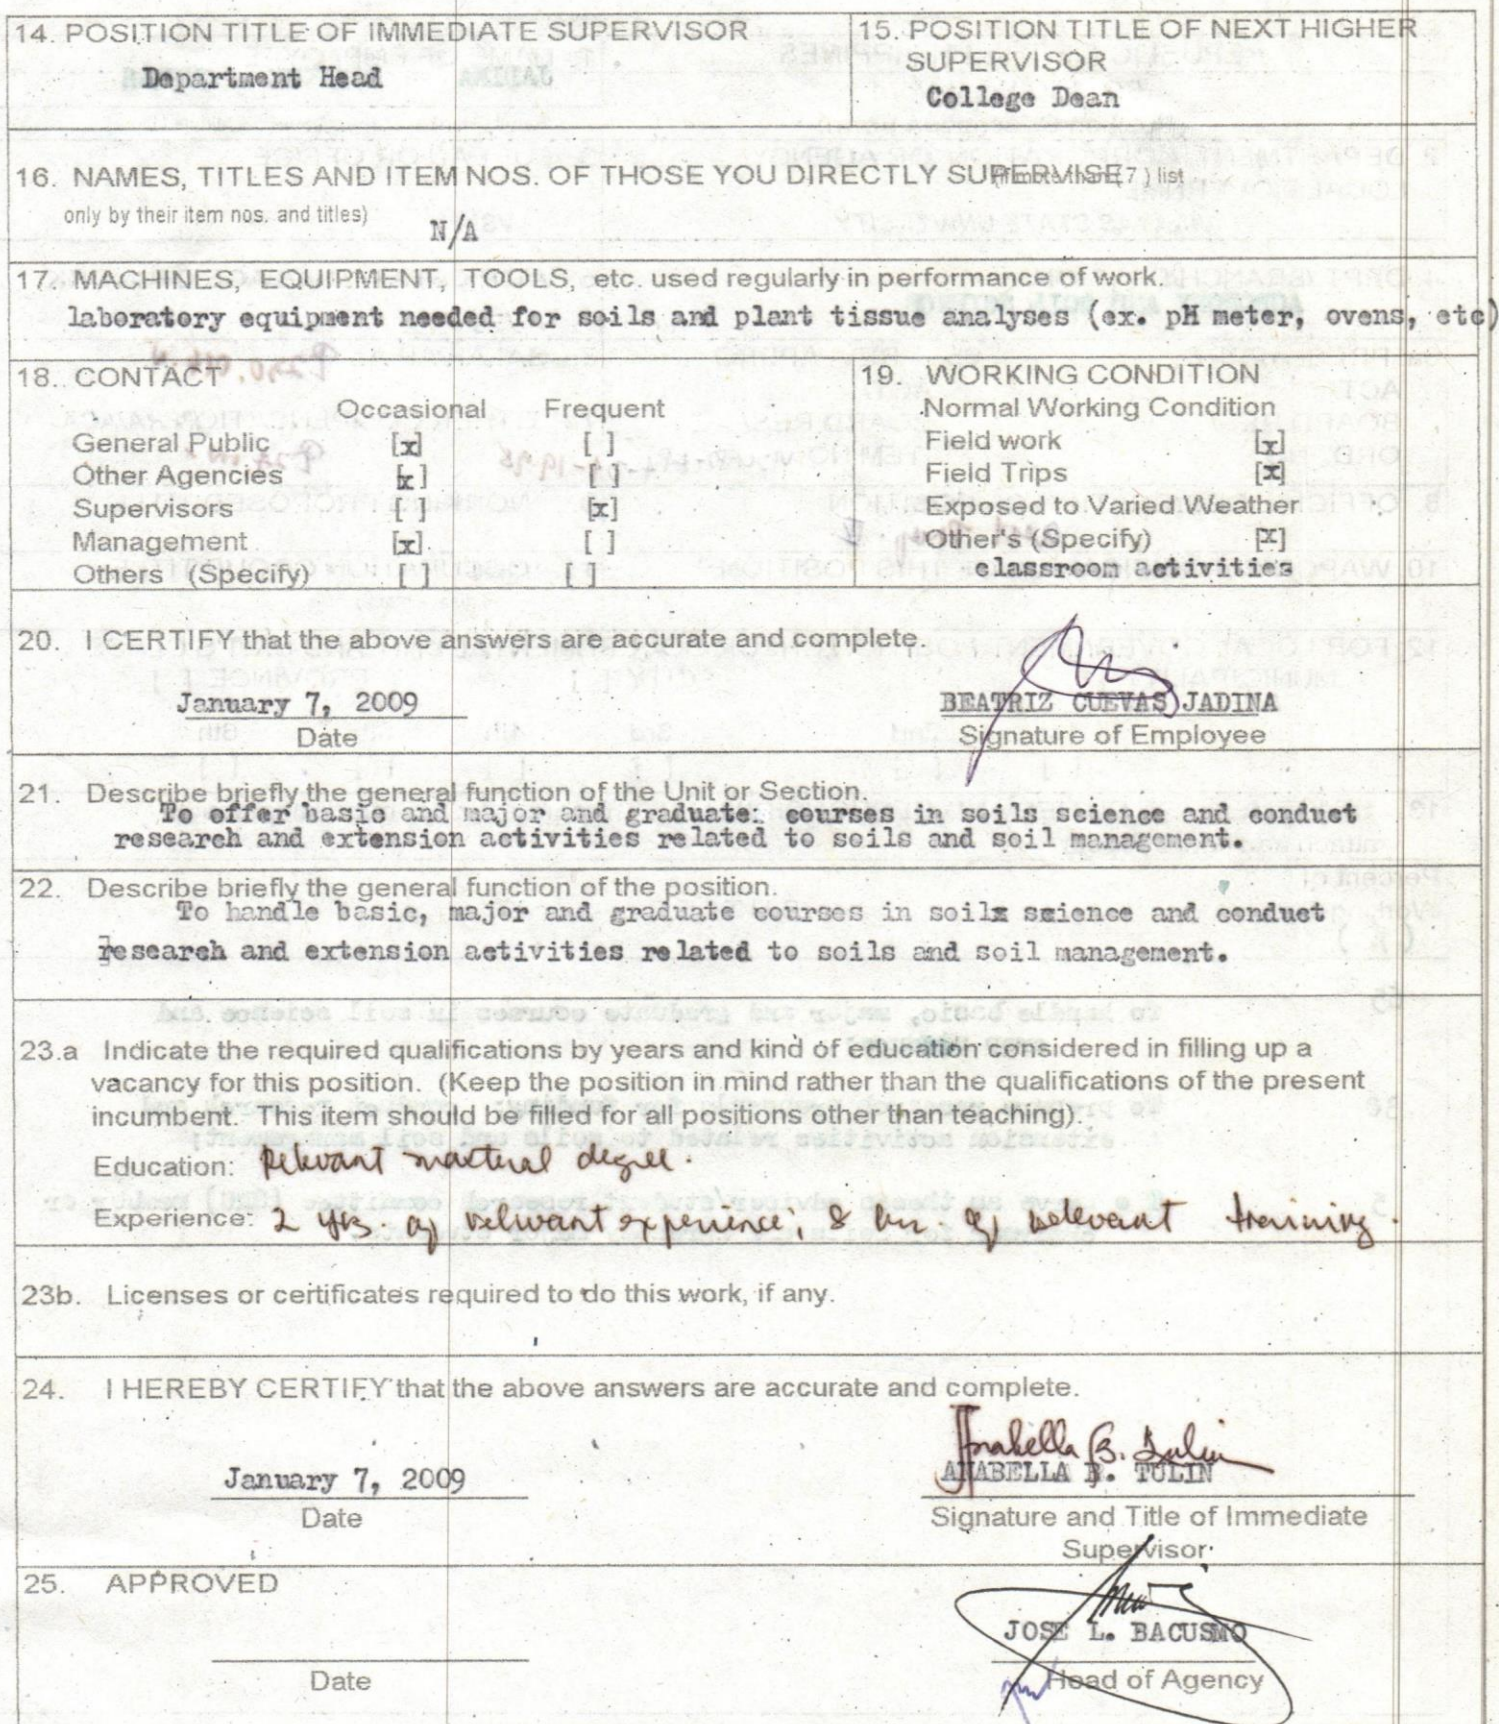 14. POSITION TITLE OF IMMEDIATE SUPERVISOR
Department Head
15. POSITION TITLE OF NEXT HIGHER
SUPERVISOR
College Dean
16. NAMES, TITLES AND ITEM NOS. OF THOSE YOU DIRECTLY SUPERVISE (if more than (7) list
only by their item nos. and titles)
N/A
17. MACHINES, EQUIPMENT, TOOLS, etc. used regularly in performance of work.
laboratory equipment needed for soils and plant tissue analyses (ex. pH meter, ovens, etc)
18. CONTACT
Occasional Frequent
General Public [x] [ ]
Other Agencies [x] [ ]
Supervisors [ ] [x]
Management [x] [ ]
Others (Specify) [ ] [ ]
19. WORKING CONDITION
Normal Working Condition
Field work [x]
Field Trips [x]
Exposed to Varied Weather
Other's (Specify) [x]
classroom activities
20. I CERTIFY that the above answers are accurate and complete.
January 7, 2009
Date
BEATRIZ CUEVAS JADINA
Signature of Employee
21. Describe briefly the general function of the Unit or Section.
To offer basic and major and graduate: courses in soils science and conduct
research and extension activities related to soils and soil management.
22. Describe briefly the general function of the position.
To handle basic, major and graduate courses in soilx sxience and conduct
research and extension activities related to soils and soil management.
23.a Indicate the required qualifications by years and kind of education considered in filling up a
vacancy for this position. (Keep the position in mind rather than the qualifications of the present
incumbent. This item should be filled for all positions other than teaching).
Education: Relevant masteral degree.
Experience: 2 yrs. of relevant experience; 8 hrs. of relevant training.
23b. Licenses or certificates required to do this work, if any.
24. I HEREBY CERTIFY that the above answers are accurate and complete.
Anabella B. Tulin
January 7, 2009
ANABELLA B. TULIN
Date
Signature and Title of Immediate
Supervisor
25. APPROVED
JOSE L. BACUSMO
Date
Head of Agency